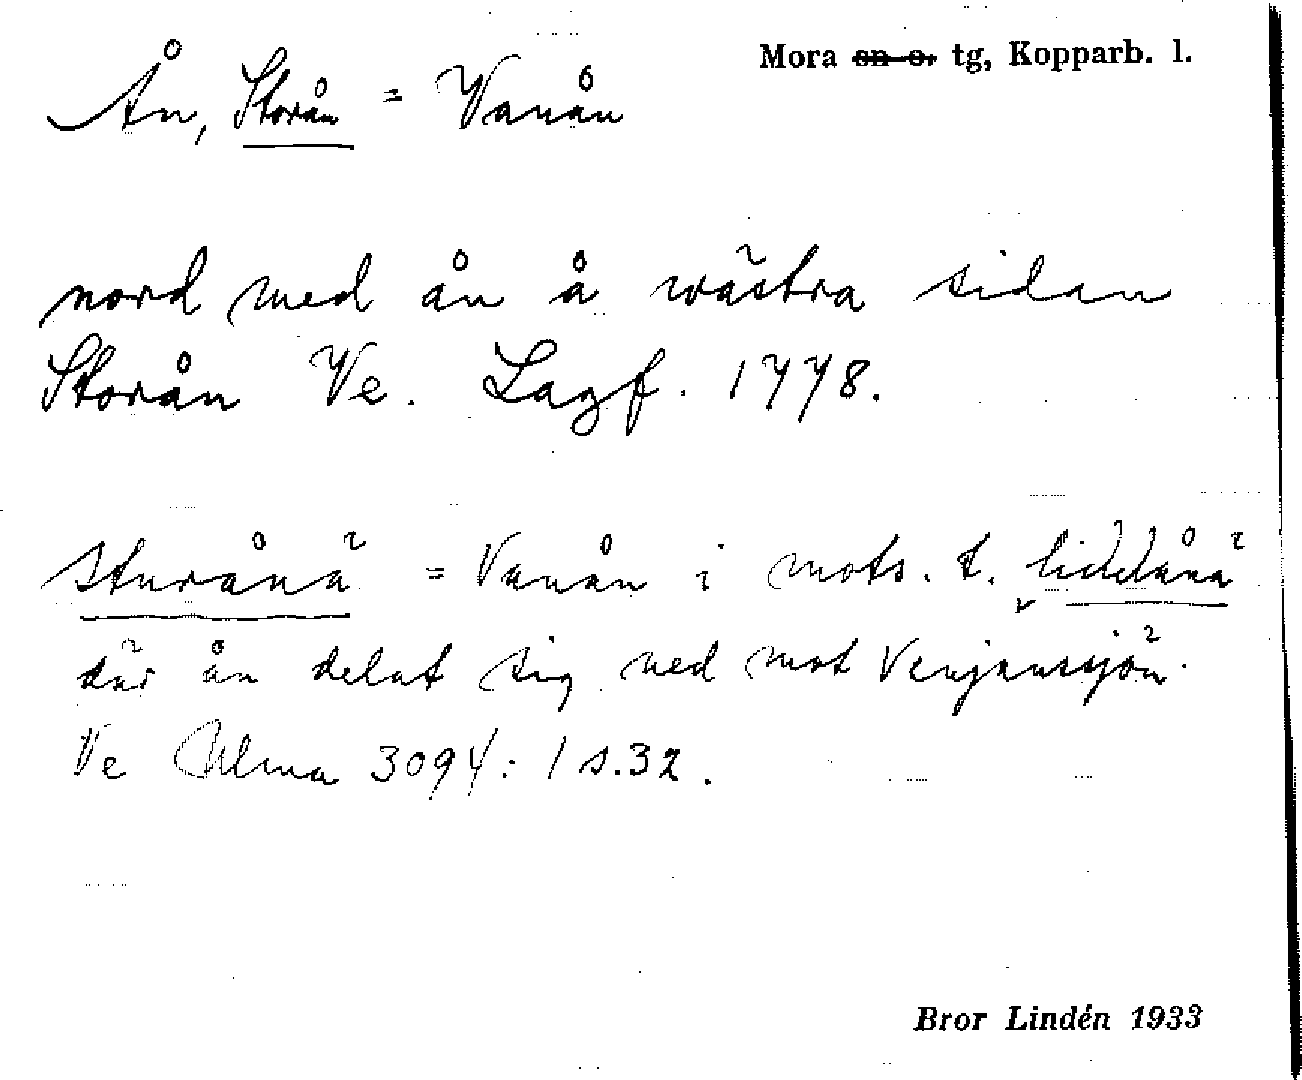 Mora sn o. tg, Kopparb. l.
Ån, Storån = Vanån
nord med ån å wästra sidan
Storån Ve. Lagf. 1778.
sturånä = Vanån i mots. t. liddånä
där ån delat sig ned mot Venjanssjön.
Ve Ulma 3094: 1 s. 32.
Bror Lindén 1933